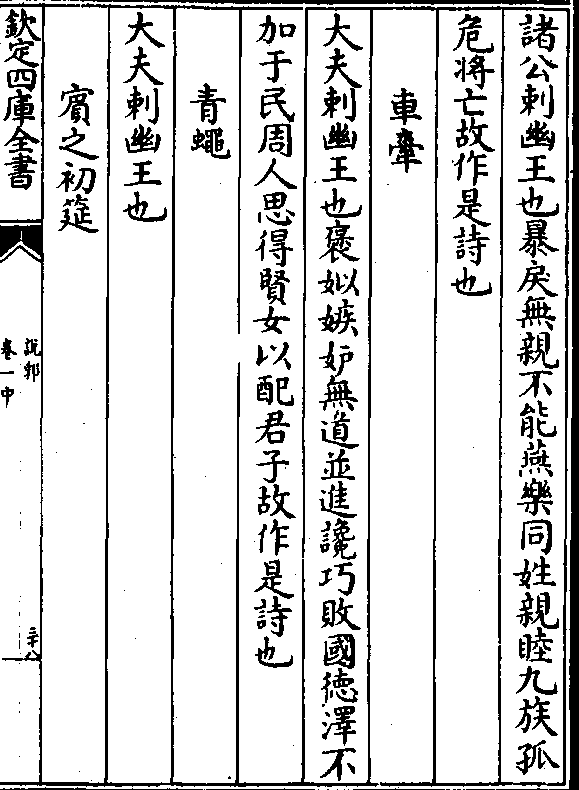 諸公刺幽王也暴戾無親不能燕樂同姓親睦九族孤
危將亡故作是詩也
車舝
大夫刺幽王也褒姒嫉妒無道並進讒巧敗國德澤不
加于民周人思得賢女以配君子故作是詩也
青蠅
大夫刺幽王也
賓之初筵
欽定四庫全書
說郛
卷一中
三十八